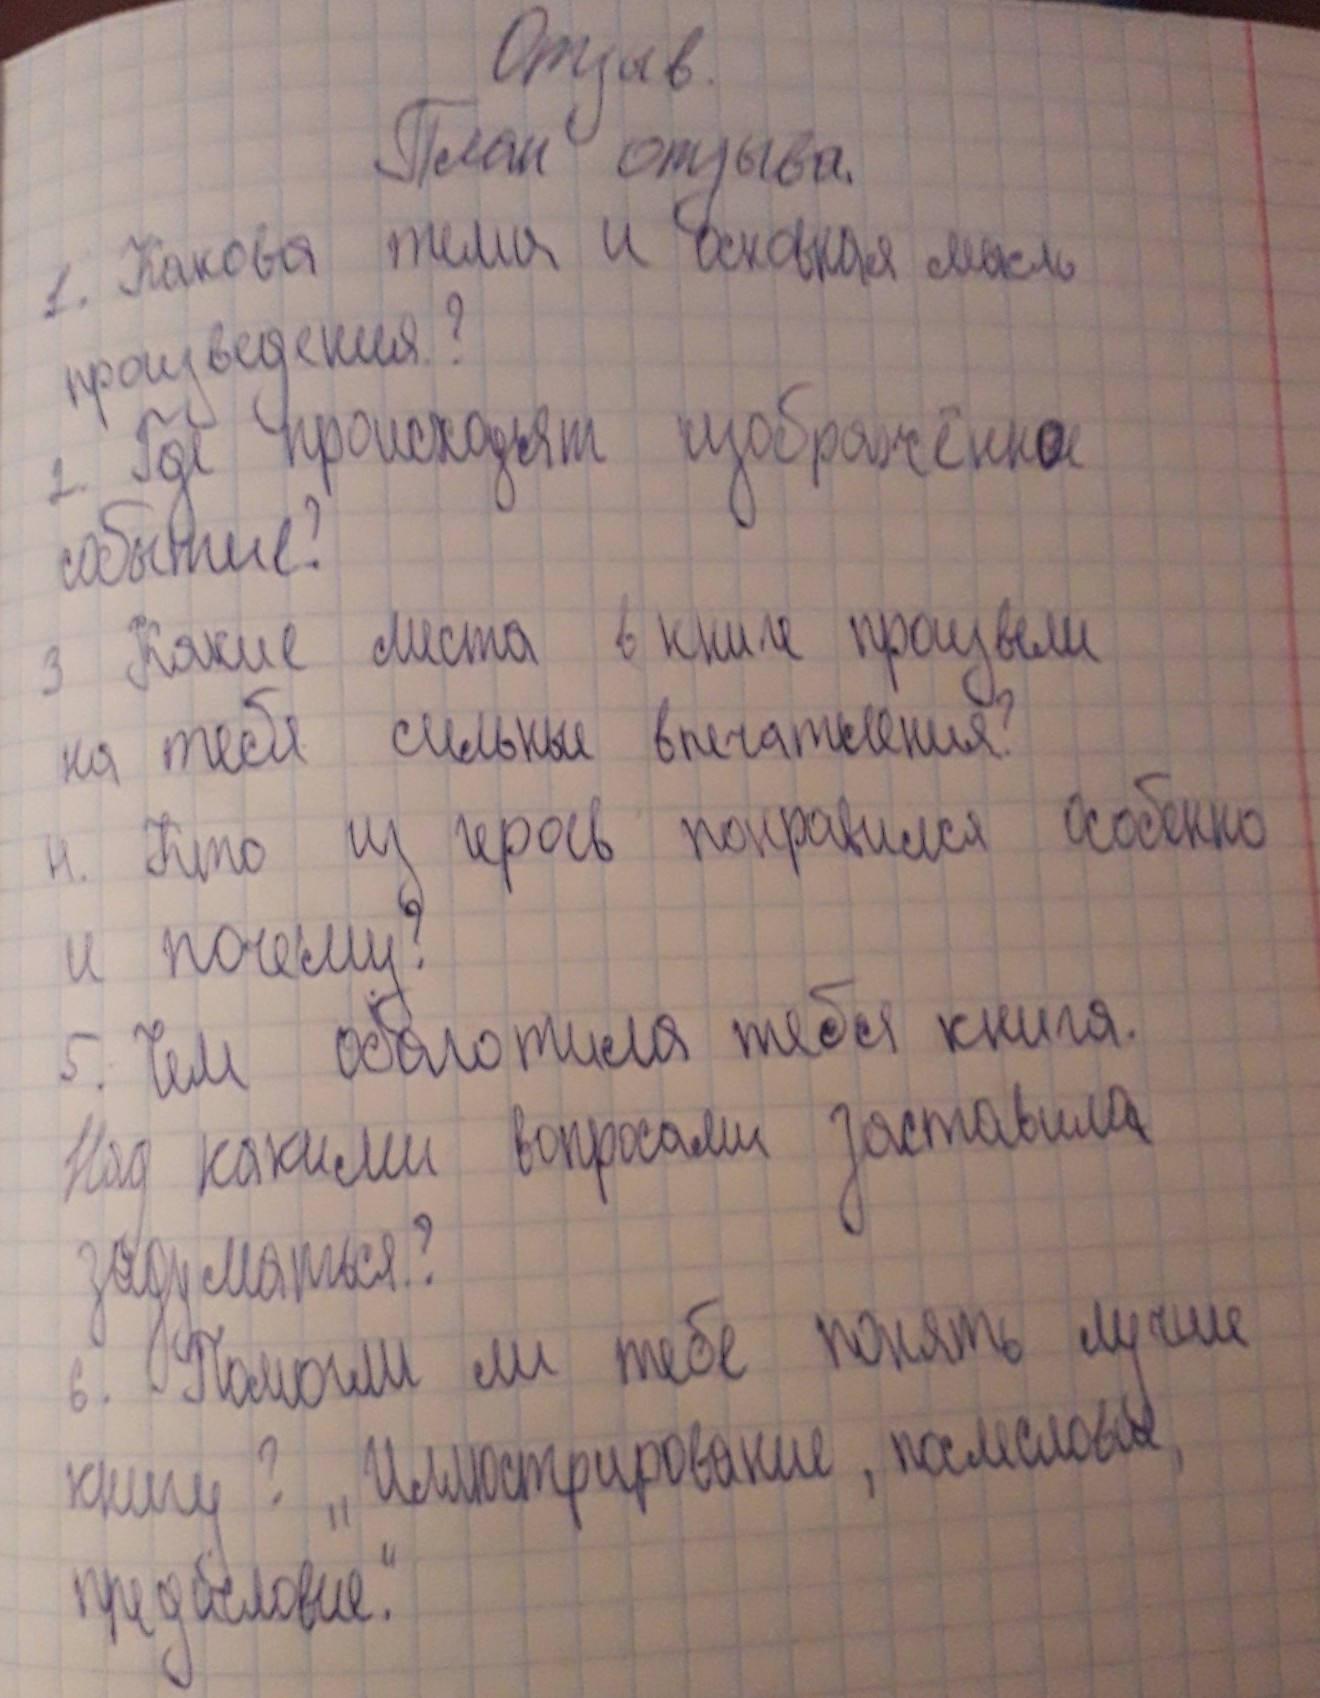 Отзыв.
План отзыва.
1. Какова тема и основная мысль
произведения?
2. Где происходят изображённое
событие?
3 Какие места в книге произвели
на тебя сильные впечатления?
4. Кто из героев понравился особенно
и почему?
5. Чем обаготила тебя книга.
Над какими вопросами заставила
задуматься?
6. Помогли ли тебе понять лучше
книгу? „Иллюстрирование, послесловие,
предисловие."